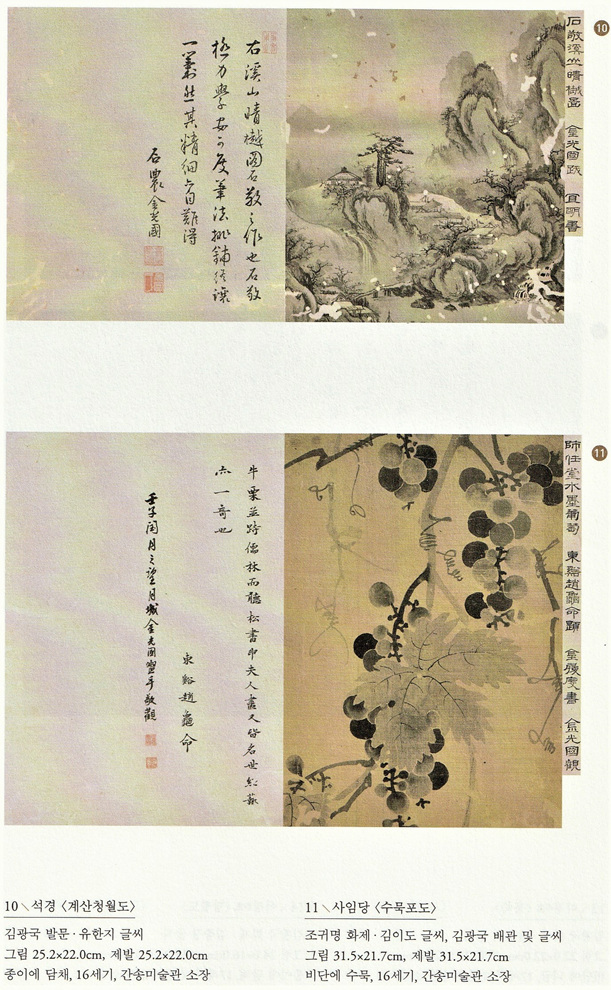 10
石敬溪山晴樾啚 金光國跋 宜明書
右溪山晴樾圖石敬之作也石敬
極力學安可度筆法排鋪終讓
一籌然其精細亦自難得
石農金光國
11
師任堂水墨葡萄 東谿趙龜命題 金履度書 金光國觀
牛栗並跱儒林而聽松書申夫人畵又皆名世於藝
亦一奇也
東谿趙龜命
壬子閏月之望月城金光國盥手敬觀
10\석경 〈계산청월도〉
김광국 발문·유한지 글씨
그림 25.2×22.0cm, 제발 25.2×22.0cm
종이에 담채, 16세기, 간송미술관 소장
11\사임당 〈수묵포도〉
조귀명 화제·김이도 글씨, 김광국 배관 및 글씨
그림 31.5×21.7cm, 제발 31.5×21.7cm
비단에 수묵, 16세기, 간송미술관 소장